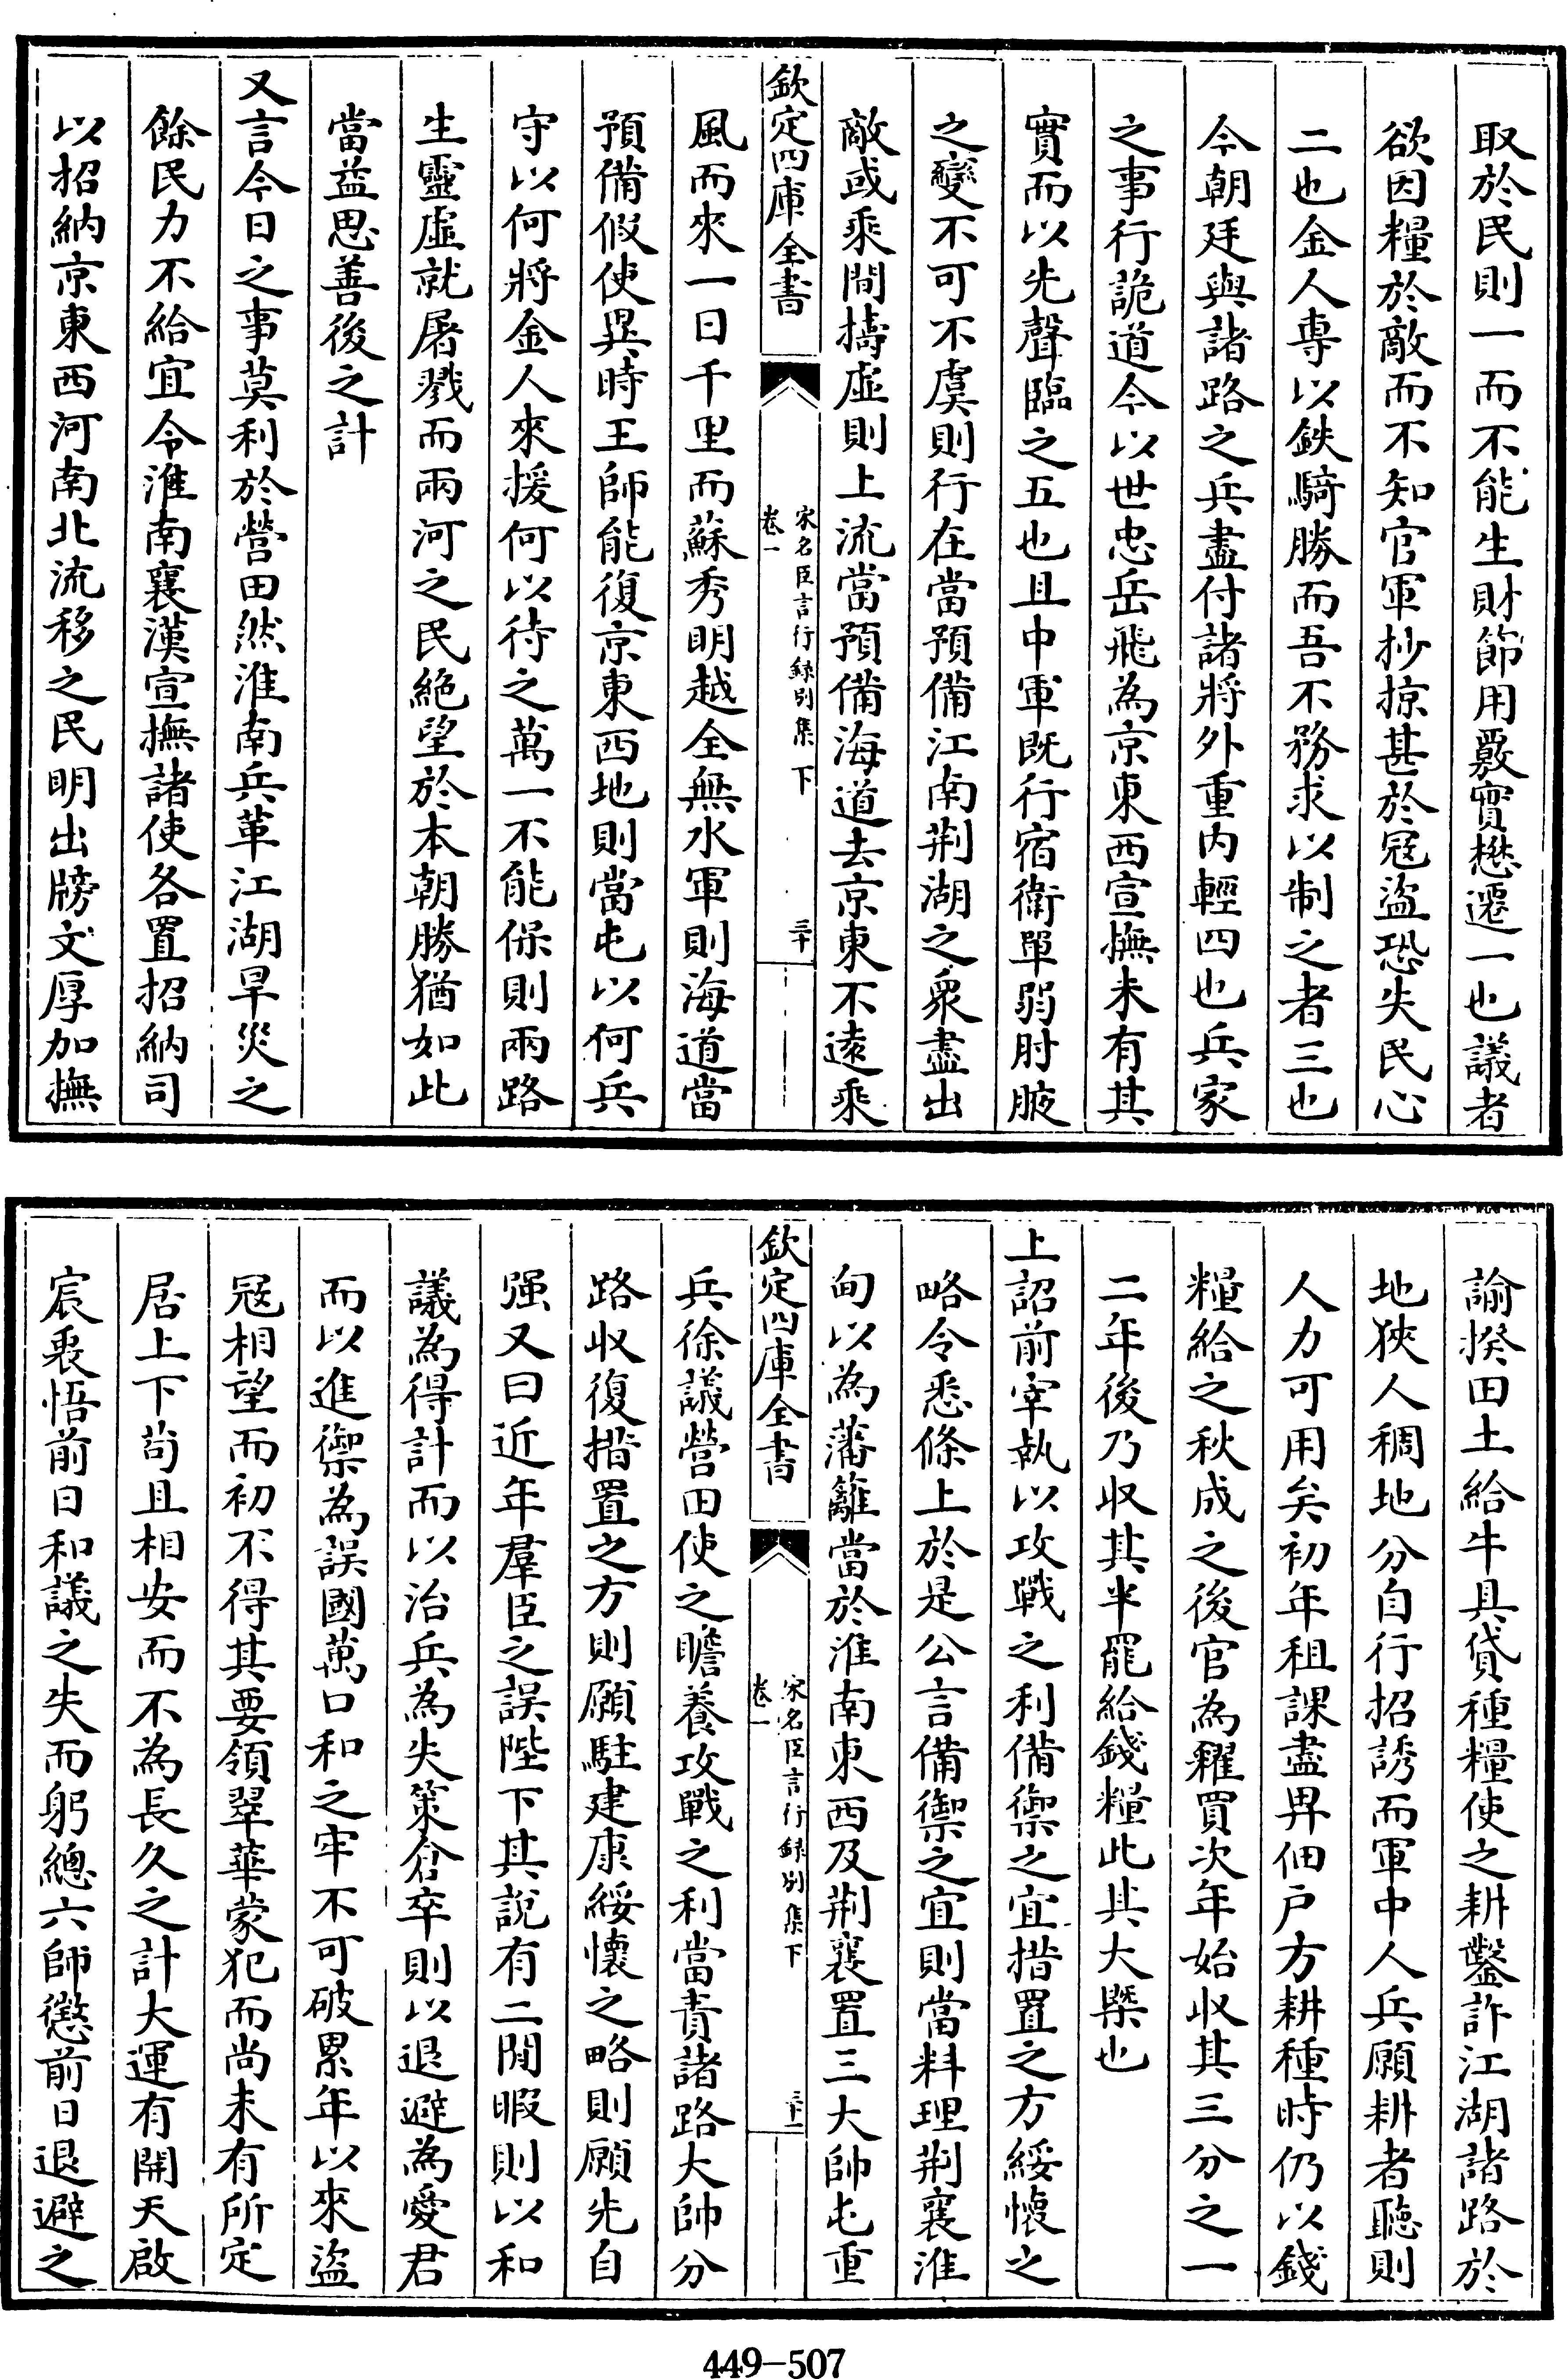 取於民則一而不能生財節用覈實懋遷一也議者
欲因糧於敵而不知官軍抄掠甚於寇盜恐失民心
二也金人専以鉄騎勝而吾不務求以制之者三也
今朝廷與諸路之兵盡付諸將外重内輕四也兵家
之事行詭道今以世忠岳飛為京東西宣撫未有其
實而以先聲臨之五也且中軍既行宿衛單弱肘腋
之變不可不虞則行在當預備江南荆湖之衆盡出
敵或乘間擣虛則上流當預備海道去京東不逺乘
欽定四庫全書
宋名臣言行録别集下
卷一
三十
風而來一日千里而蘇秀明越全無水軍則海道當
預備假使異時王師能復京東西地則當屯以何兵
守以何將金人來援何以待之萬一不能保則兩路
生靈虛就屠戮而兩河之民絶望於本朝勝猶如此
當益思善後之計
又言今日之事莫利於營田然淮南兵革江湖旱災之
餘民力不給宜令淮南襄漢宣撫諸使各置招納司
以招納京東西河南北流移之民明出牓文厚加撫
諭撥田土給牛具貸種糧使之耕鑿許江湖諸路於
地狹人稠地分自行招誘而軍中人兵願耕者聽則
人力可用矣初年租課盡畀佃户方耕種時仍以錢
糧給之秋成之後官為糴買次年始收其三分之一
二年後乃收其半罷給錢糧此其大槩也
上詔前宰執以攻戰之利備禦之宜措置之方綏懷之
略令悉條上於是公言備禦之宜則當料理荆襄淮
甸以為藩籬當於淮南東西及荆襄置三大帥屯重
欽定四庫全書
宋名臣言行録别集下
卷一
三十一
兵徐議營田使之贍養攻戰之利當責諸路大帥分
路收復措置之方則願駐建康綏懷之略則願先自
强又曰近年羣臣之誤陛下其説有二閒暇則以和
議為得計而以治兵為失策倉卒則以退避為愛君
而以進禦為誤國萬口和之牢不可破累年以來盜
寇相望而初不得其要領翠華蒙犯而尚未有所定
居上下苟且相安而不為長久之計大運有開天啟
宸衷悟前日和議之失而躬總六師懲前日退避之
449-507